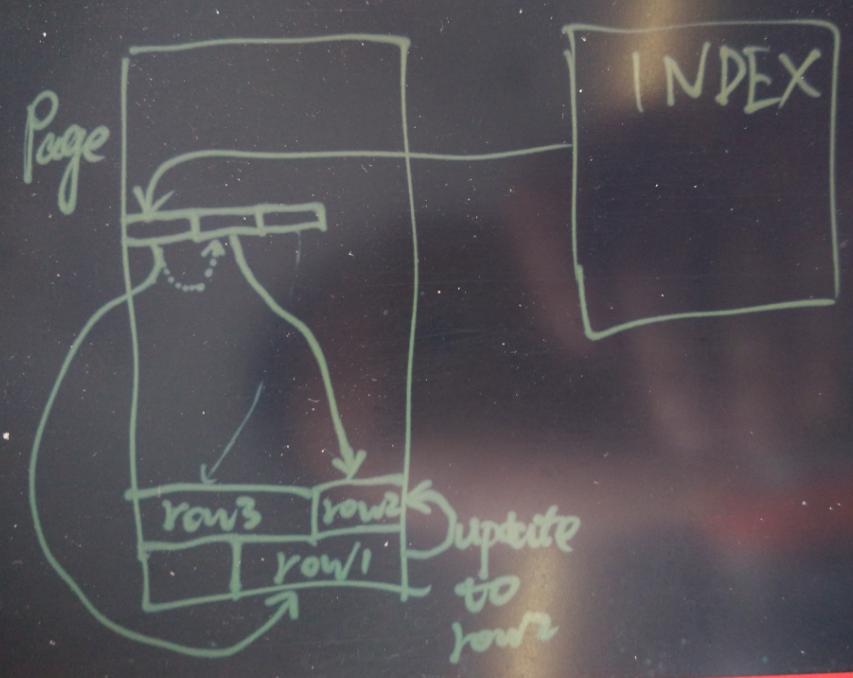 INDEX
Page
row3
row2
row1
update
to
row2